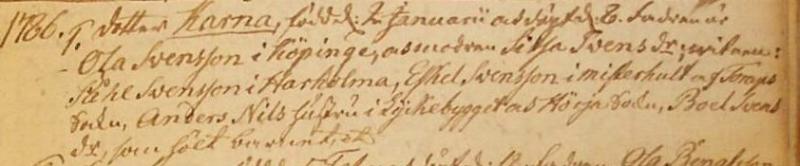 1786. 7. dotter Karna, född d: 2 Januarii och döpt d: 6. Fadren är
Ola Svensson i Köpinge, och modren Sissa Svens dr; vitnen:
Påhl Svensson i Harholma, Eskel Svensson i misterhult af
Sockn, Anders Nils hustru i Lyckebygget och Hörja Sockn, Boel Svens
dr, som hölt barnet,
Ola Bengtsson